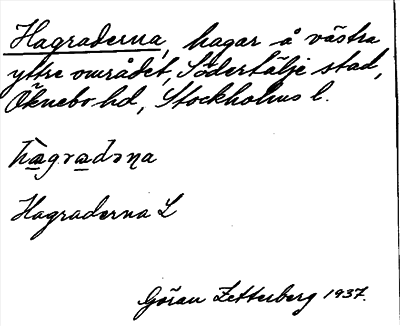 Hagraderna, hagar å västra
yttre området, Södertälje stad,
Öknebo hd, Stockholms l.
hagradəṇa
Hagraderna L
Göran Zetterberg 1937.